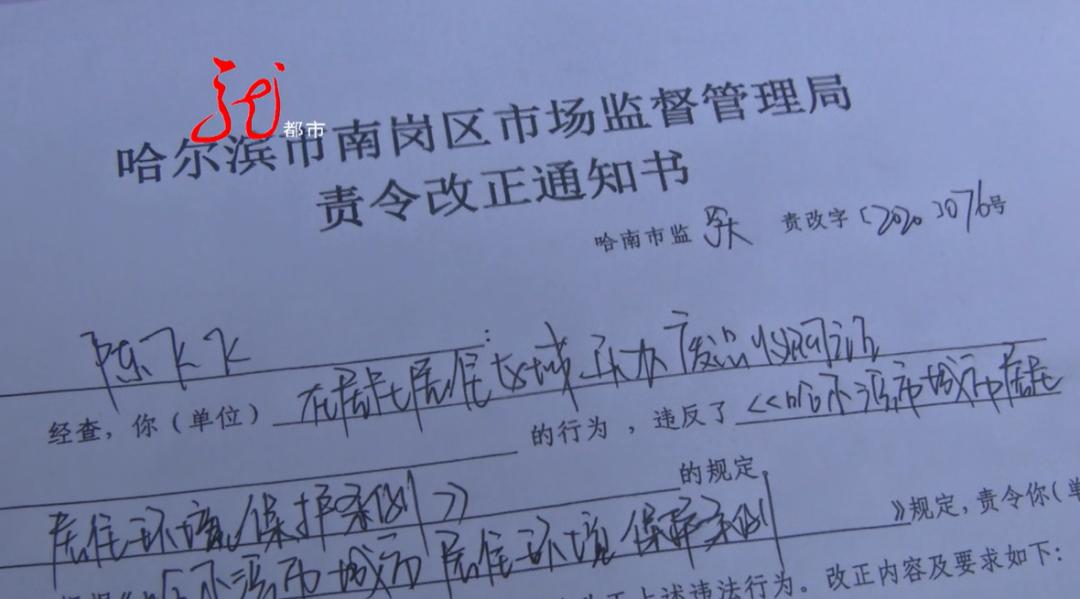 都市
哈尔滨市南岗区市场监督管理局
责令改正通知书
哈南市监 责改字〔2020〕076号
陈
经查，你（单位） 在居民居住区域 废品收购
的行为，违反了《哈尔滨市城市居民
居住环境保护条例》 的规定。
哈尔滨市城市居住环境保障条例 》规定，责令你（单
正上述违法行为。改正内容及要求如下：